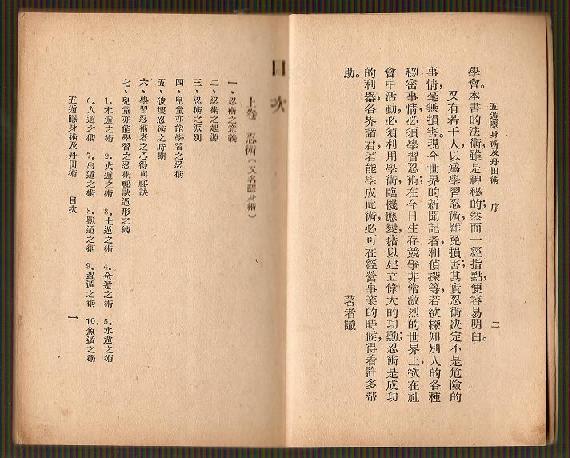 五遁隱身術及丹田術 序 二
學會。本書的法術,雖是神秘的,然而一經指點,便容易明白。
又有若干人,以為學習忍術,難免損害,其實忍術決定不是危險的
事情,毫無損害。現今世界的新聞記者和偵探等,若欲探知別人的各種
秘密事情,必須學習忍術。在今日生存競爭非常激烈的世界上,欲在社
會中活動,必須利用學術,臨機應變,藉以建立偉大的功勳;忍術是成功
的利器,各界諸君,若能學成此術,必可在經營事業的時候,得着許多幫
助。
著者識
目次
上卷 忍術(又名隱身術)
一、忍術之意義
二、忍術之起源
三、忍術之派別
四、兒童亦能學習之忍術
五、忍術之時期
六、學習忍術者之心得與秘訣
七、兒童亦能學習之忍術秘訣遁形之術
1.木遁之術 2.火遁之術 3.土遁之術 4.金遁之術 5.水遁之術
6.人遁之術 7.禽遁之術 8.獸遁之術 9.蟲遁之術 10.魚遁之術
五遁隱身術及丹田術 目次 一